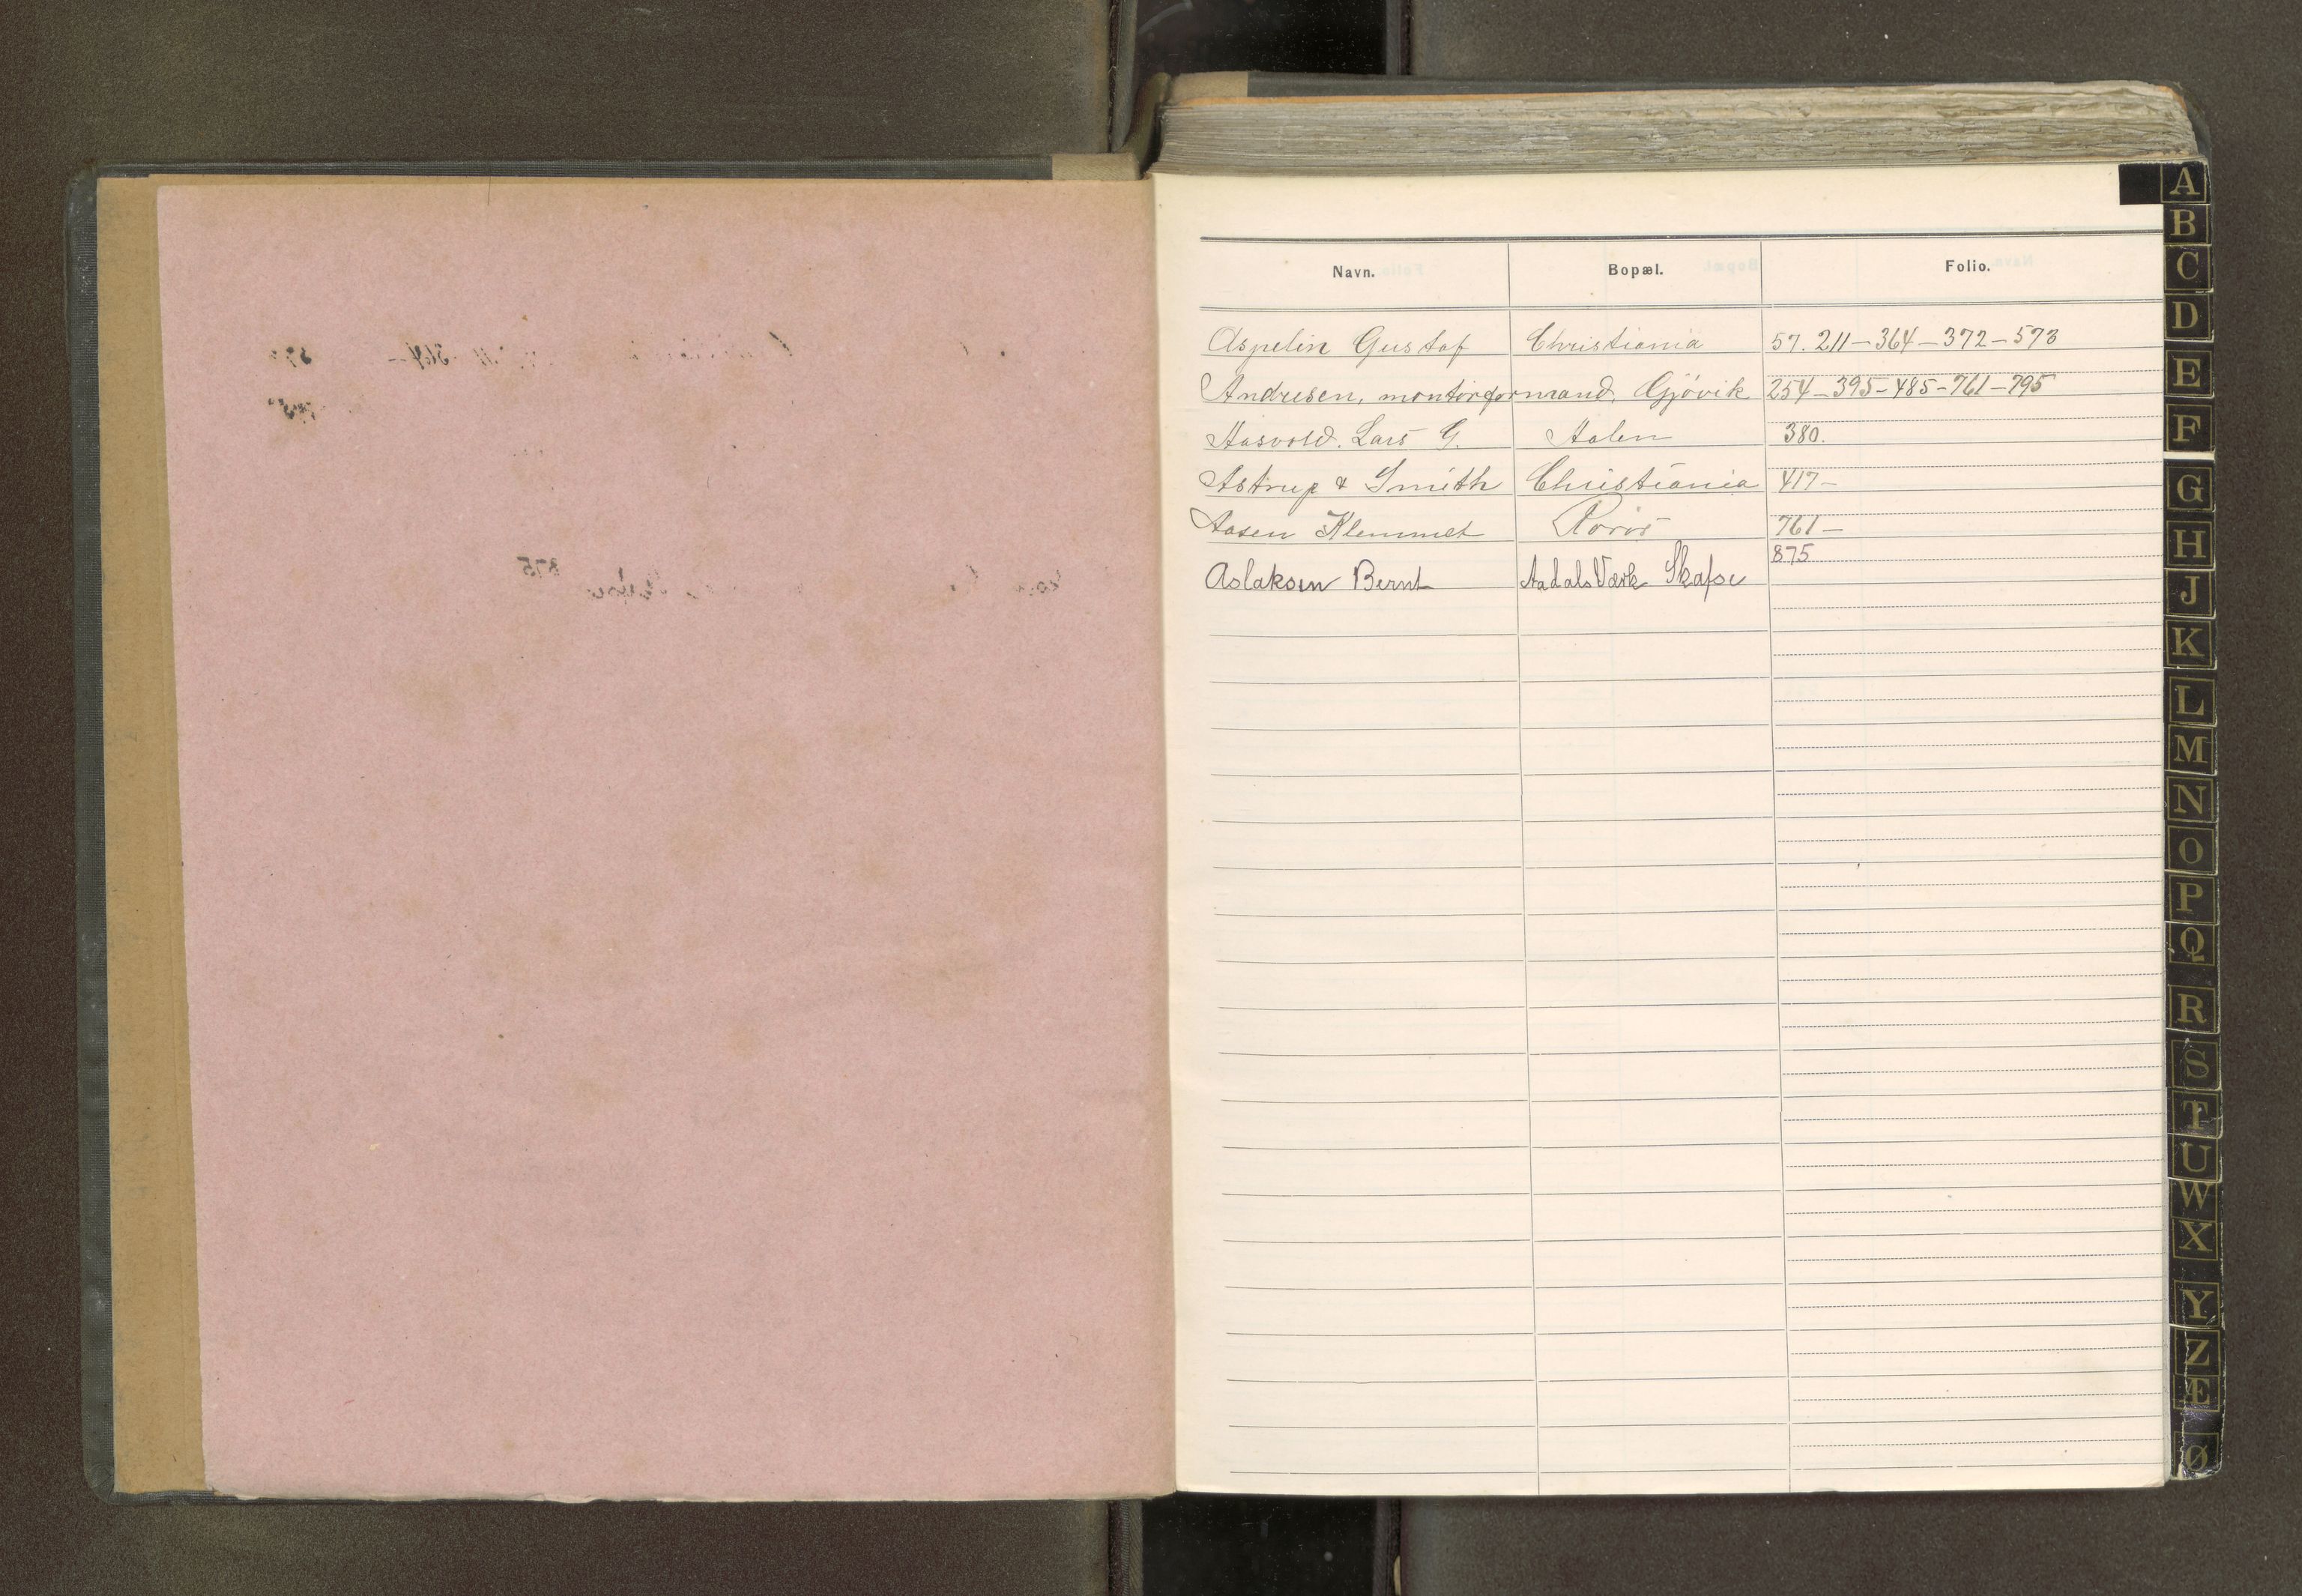 Navn. Bopæl. Folio.
Aspelin Gustaf Christiania 57. 211-364-372-573
Andresen, montørformand, Gjövik 254-395-485-761-795
Aasvold. Lars G. Aalen 380.
Astrup & Smith Christiania 417-
Aasen Klemmet Rörös 761-
Aslaksen Bernt Aadals Værk Skafse 875
A
B
C
D
E
F
G
H
J
K
L
M
N
O
P
Q
R
S
T
U
W
X
Y
Z
Æ
Ø